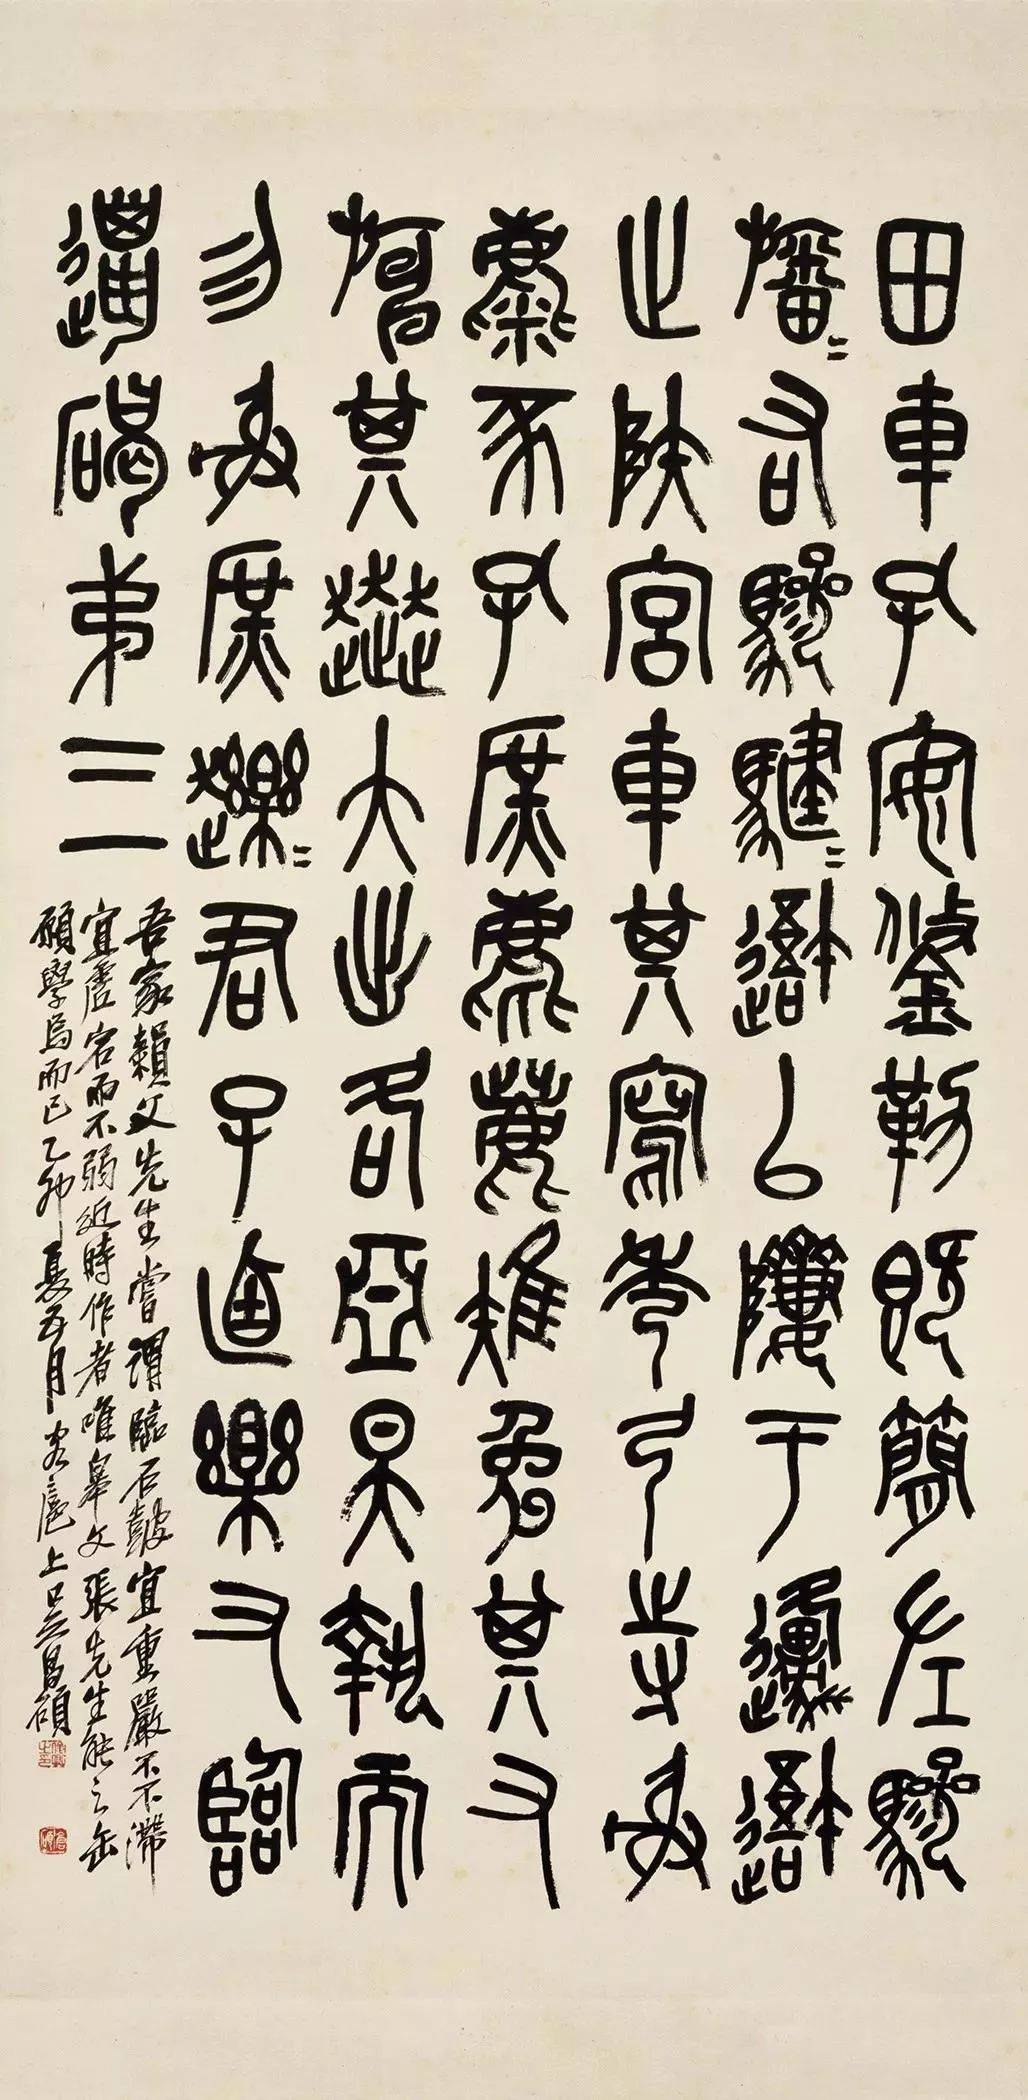 田車孔安鋚勒既簡左驂
旛=右驂騝=䢖以隮于邍䢖
止陸宮車其寫秀弓寺射
麋豕孔庶麀鹿雉兔其又
其大出各亞昊執而
勿射庶趯=君子迺樂又臨
邋碣弟三
吾家父先生嘗謂臨石鼓宜重嚴而不滯
宜虛宕而不弱近時作者唯皋文張先生能之缶
願學焉而已乙卯夏五月客滬上吳昌碩
俊卿之印
倉碩